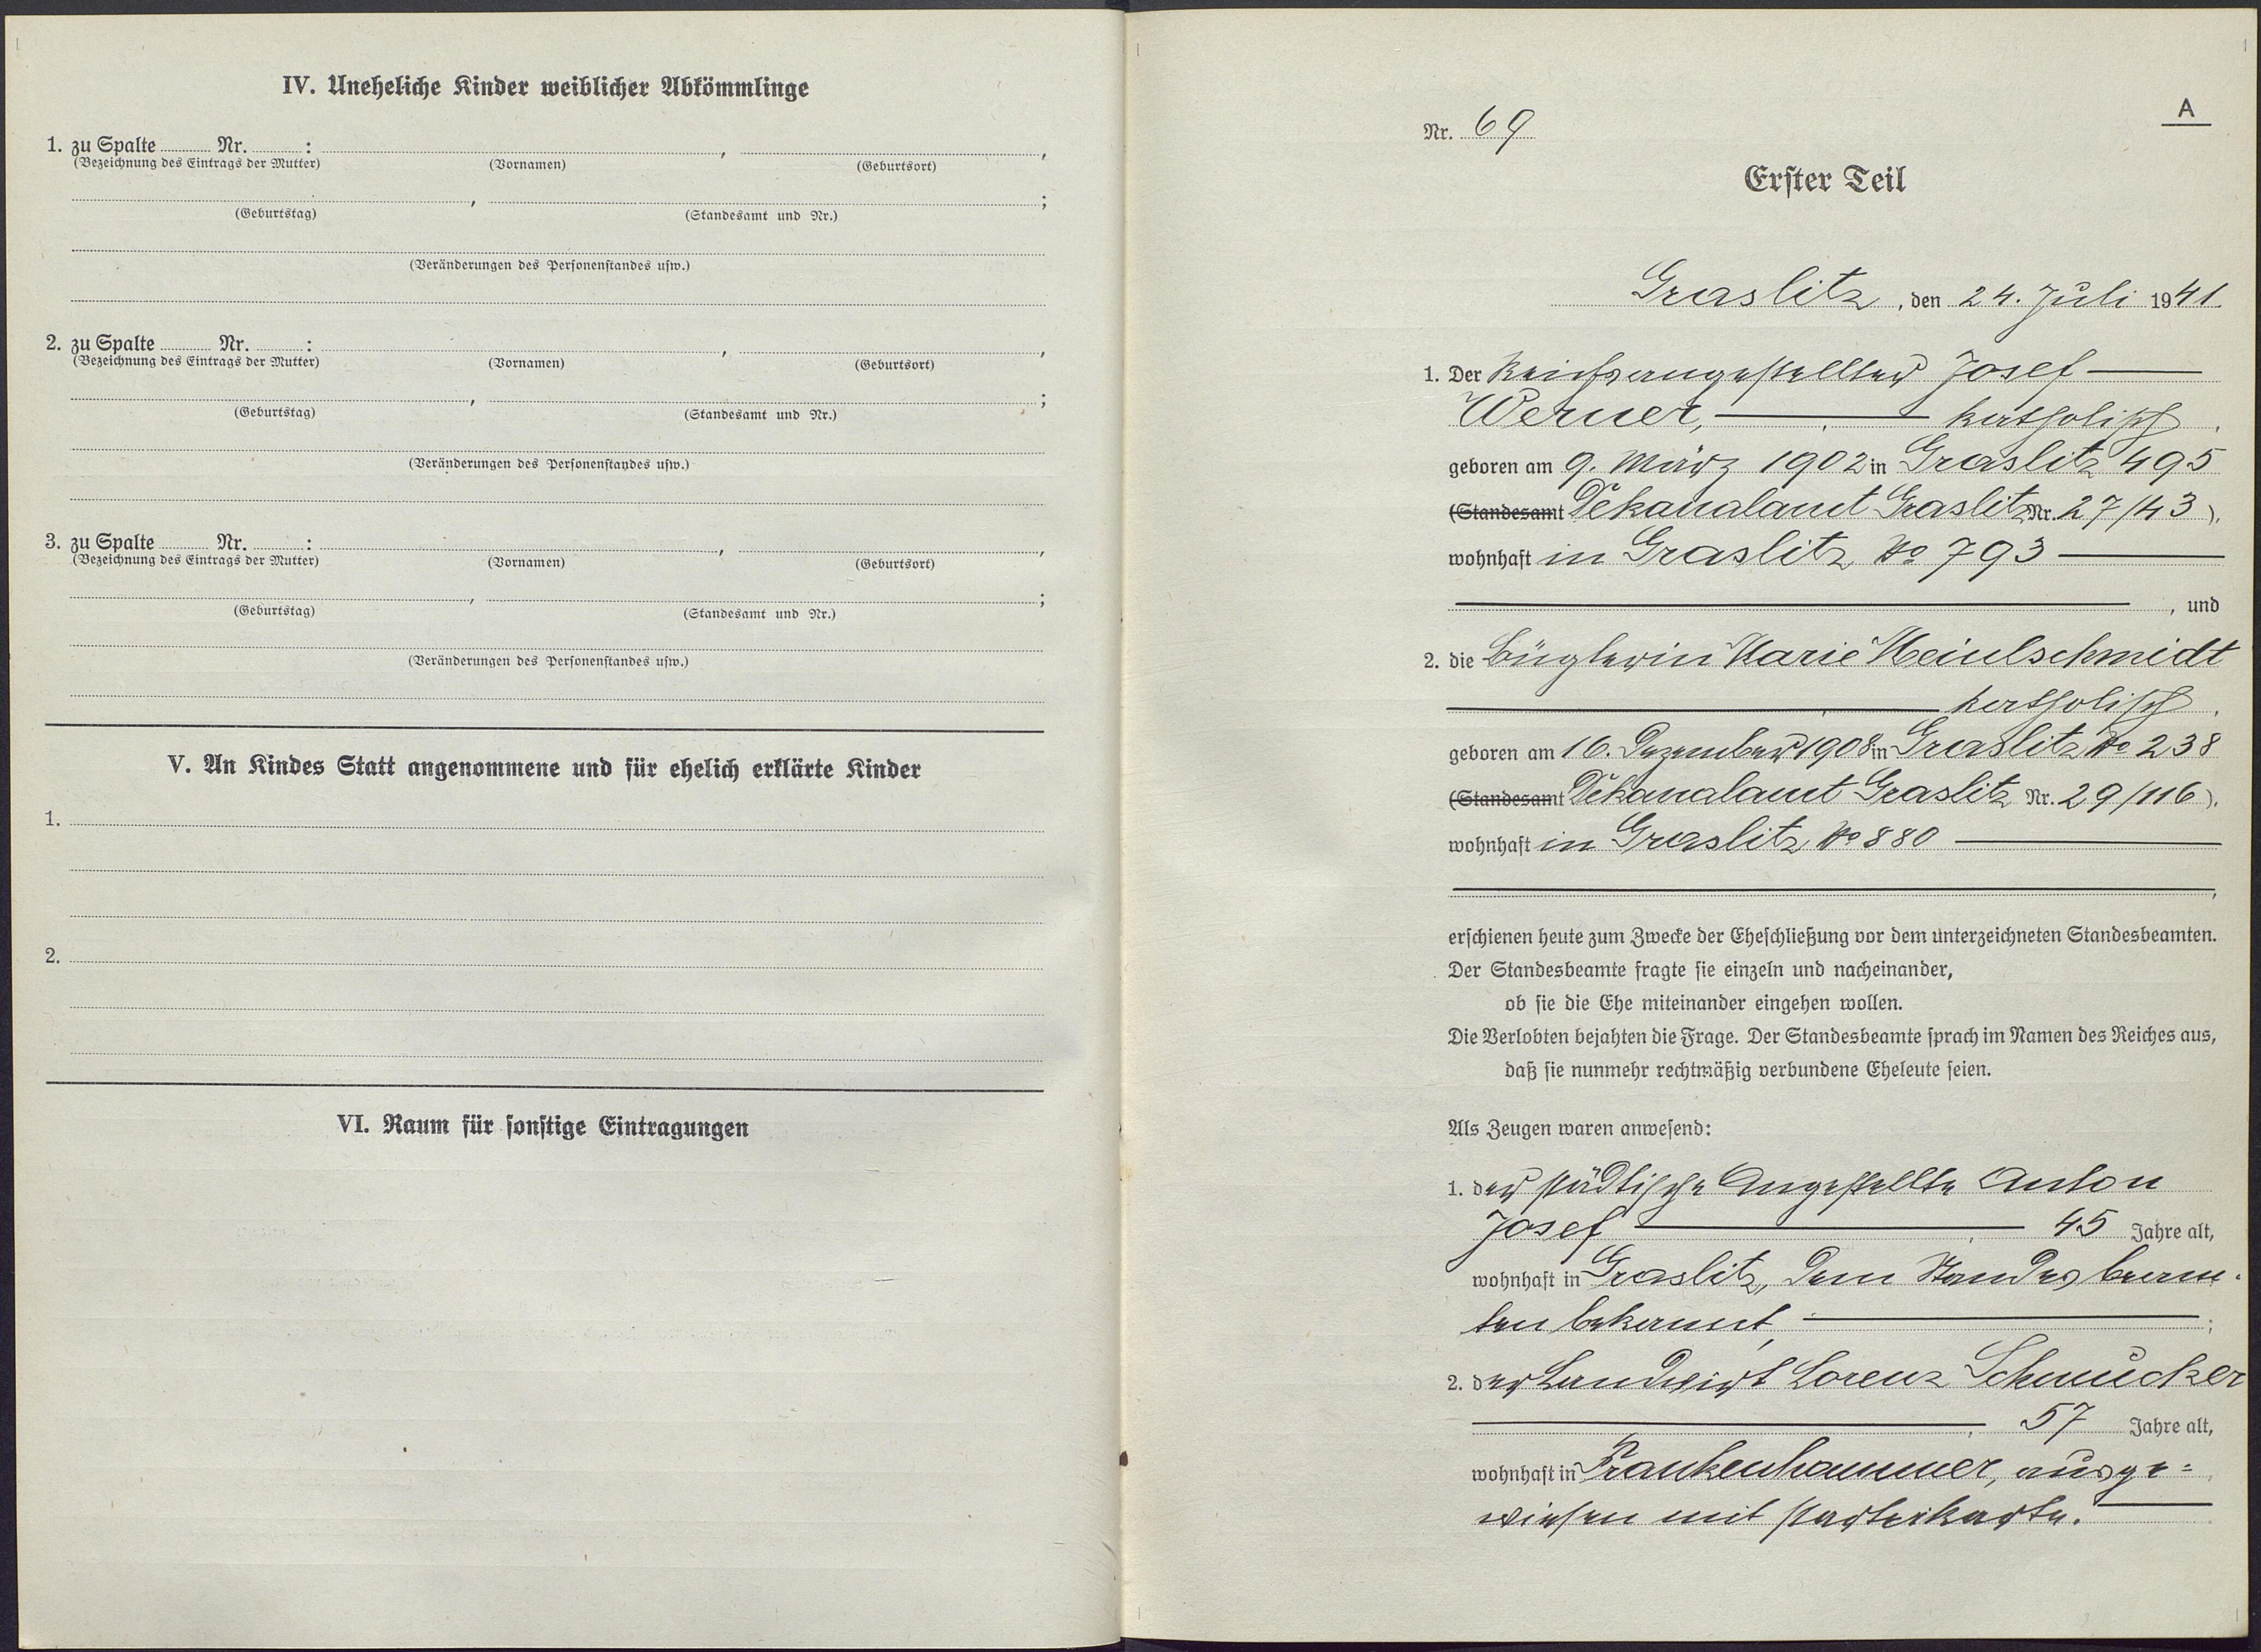 IV. Uneheliche Kinder weiblicher Abkömmlinge
1. zu Spalte ........ Nr. ........ : ........ , ........ ,
(Bezeichnung des Eintrags der Mutter) (Vornamen) (Geburtsort)
........ , ........ ;
(Geburtstag) (Standesamt und Nr.)
(Veränderungen des Personenstandes usw.)
2. zu Spalte ........ Nr. ........ : ........ , ........ ,
(Bezeichnung des Eintrags der Mutter) (Vornamen) (Geburtsort)
........ , ........ ;
(Geburtstag) (Standesamt und Nr.)
(Veränderungen des Personenstandes usw.)
3. zu Spalte ........ Nr. ........ : ........ , ........ ,
(Bezeichnung des Eintrags der Mutter) (Vornamen) (Geburtsort)
........ , ........ ;
(Geburtstag) (Standesamt und Nr.)
(Veränderungen des Personenstandes usw.)
V. An Kindes Statt angenommene und für ehelich erklärte Kinder
1.
2.
VI. Raum für sonstige Eintragungen
A
Nr. 69
Erster Teil
Graslitz, den 24. Juli 1941
1. Der Reichsangestellter Josef
Werner, katholisch,
geboren am 9. März 1902 in Graslitz 495
(Standesamt Dekanalamt Graslitz Nr. 27/43),
wohnhaft in Graslitz No 793
, und
2. die Büglerin Marie Meinlschmidt
, katholisch,
geboren am 16. Dezember 1908 in Graslitz No 238
(Standesamt Dekanalamt Graslitz Nr. 29/116),
wohnhaft in Graslitz No 880
,
erschienen heute zum Zwecke der Eheschließung vor dem unterzeichneten Standesbeamten.
Der Standesbeamte fragte sie einzeln und nacheinander,
ob sie die Ehe miteinander eingehen wollen.
Die Verlobten bejahten die Frage. Der Standesbeamte sprach im Namen des Reiches aus,
daß sie nunmehr rechtmäßig verbundene Eheleute seien.
Als Zeugen waren anwesend:
1. der städtische Angestellte Anton
Josef, 45 Jahre alt,
wohnhaft in Graslitz, dem Standesbeam-
ten bekannt;
2. der Landwirt Lorenz Schmucker
, 57 Jahre alt,
wohnhaft in Frankenhammer, ausge=
wiesen mit Parteikarte.